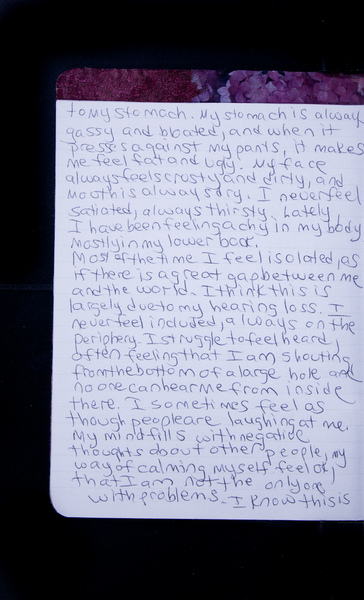 to my stomach. My stomach is always
gassy and bloated, and when it
presses against my pants, it makes
me feel fat and ugly. My face
always feels crusty and dirty, and
mouth is always dry. I never feel
satiated, always thirsty. Lately,
I have been feeling achy in my body
mostly in my lower back.
Most of the time I feel isolated, as
if there is a great gap between me
and the world. I think this is
largely due to my hearing loss. I
never feel included, always on the
periphery. I struggle to feel heard,
often feeling that I am shouting
from the bottom of a large hole and
no one can hear me from inside
there. I sometimes feel as
though people are laughing at me.
My mind fills with negative
thoughts about other people, my
way of calming myself feel ok,
that I am not the only one
with problems. I know this is